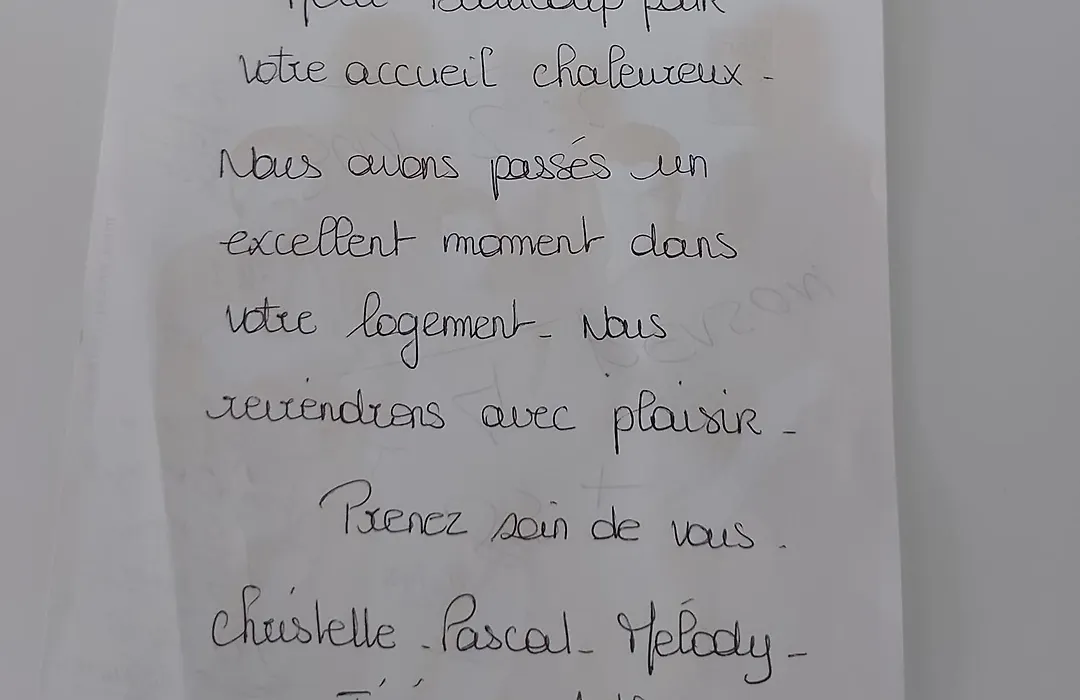 beaucoup pour
votre accueil chaleureux -
Nous avons passés un
excellent moment dans
votre logement - Nous
reviendrons avec plaisir -
Prenez soin de vous .
Christelle - Pascal - Mélody -